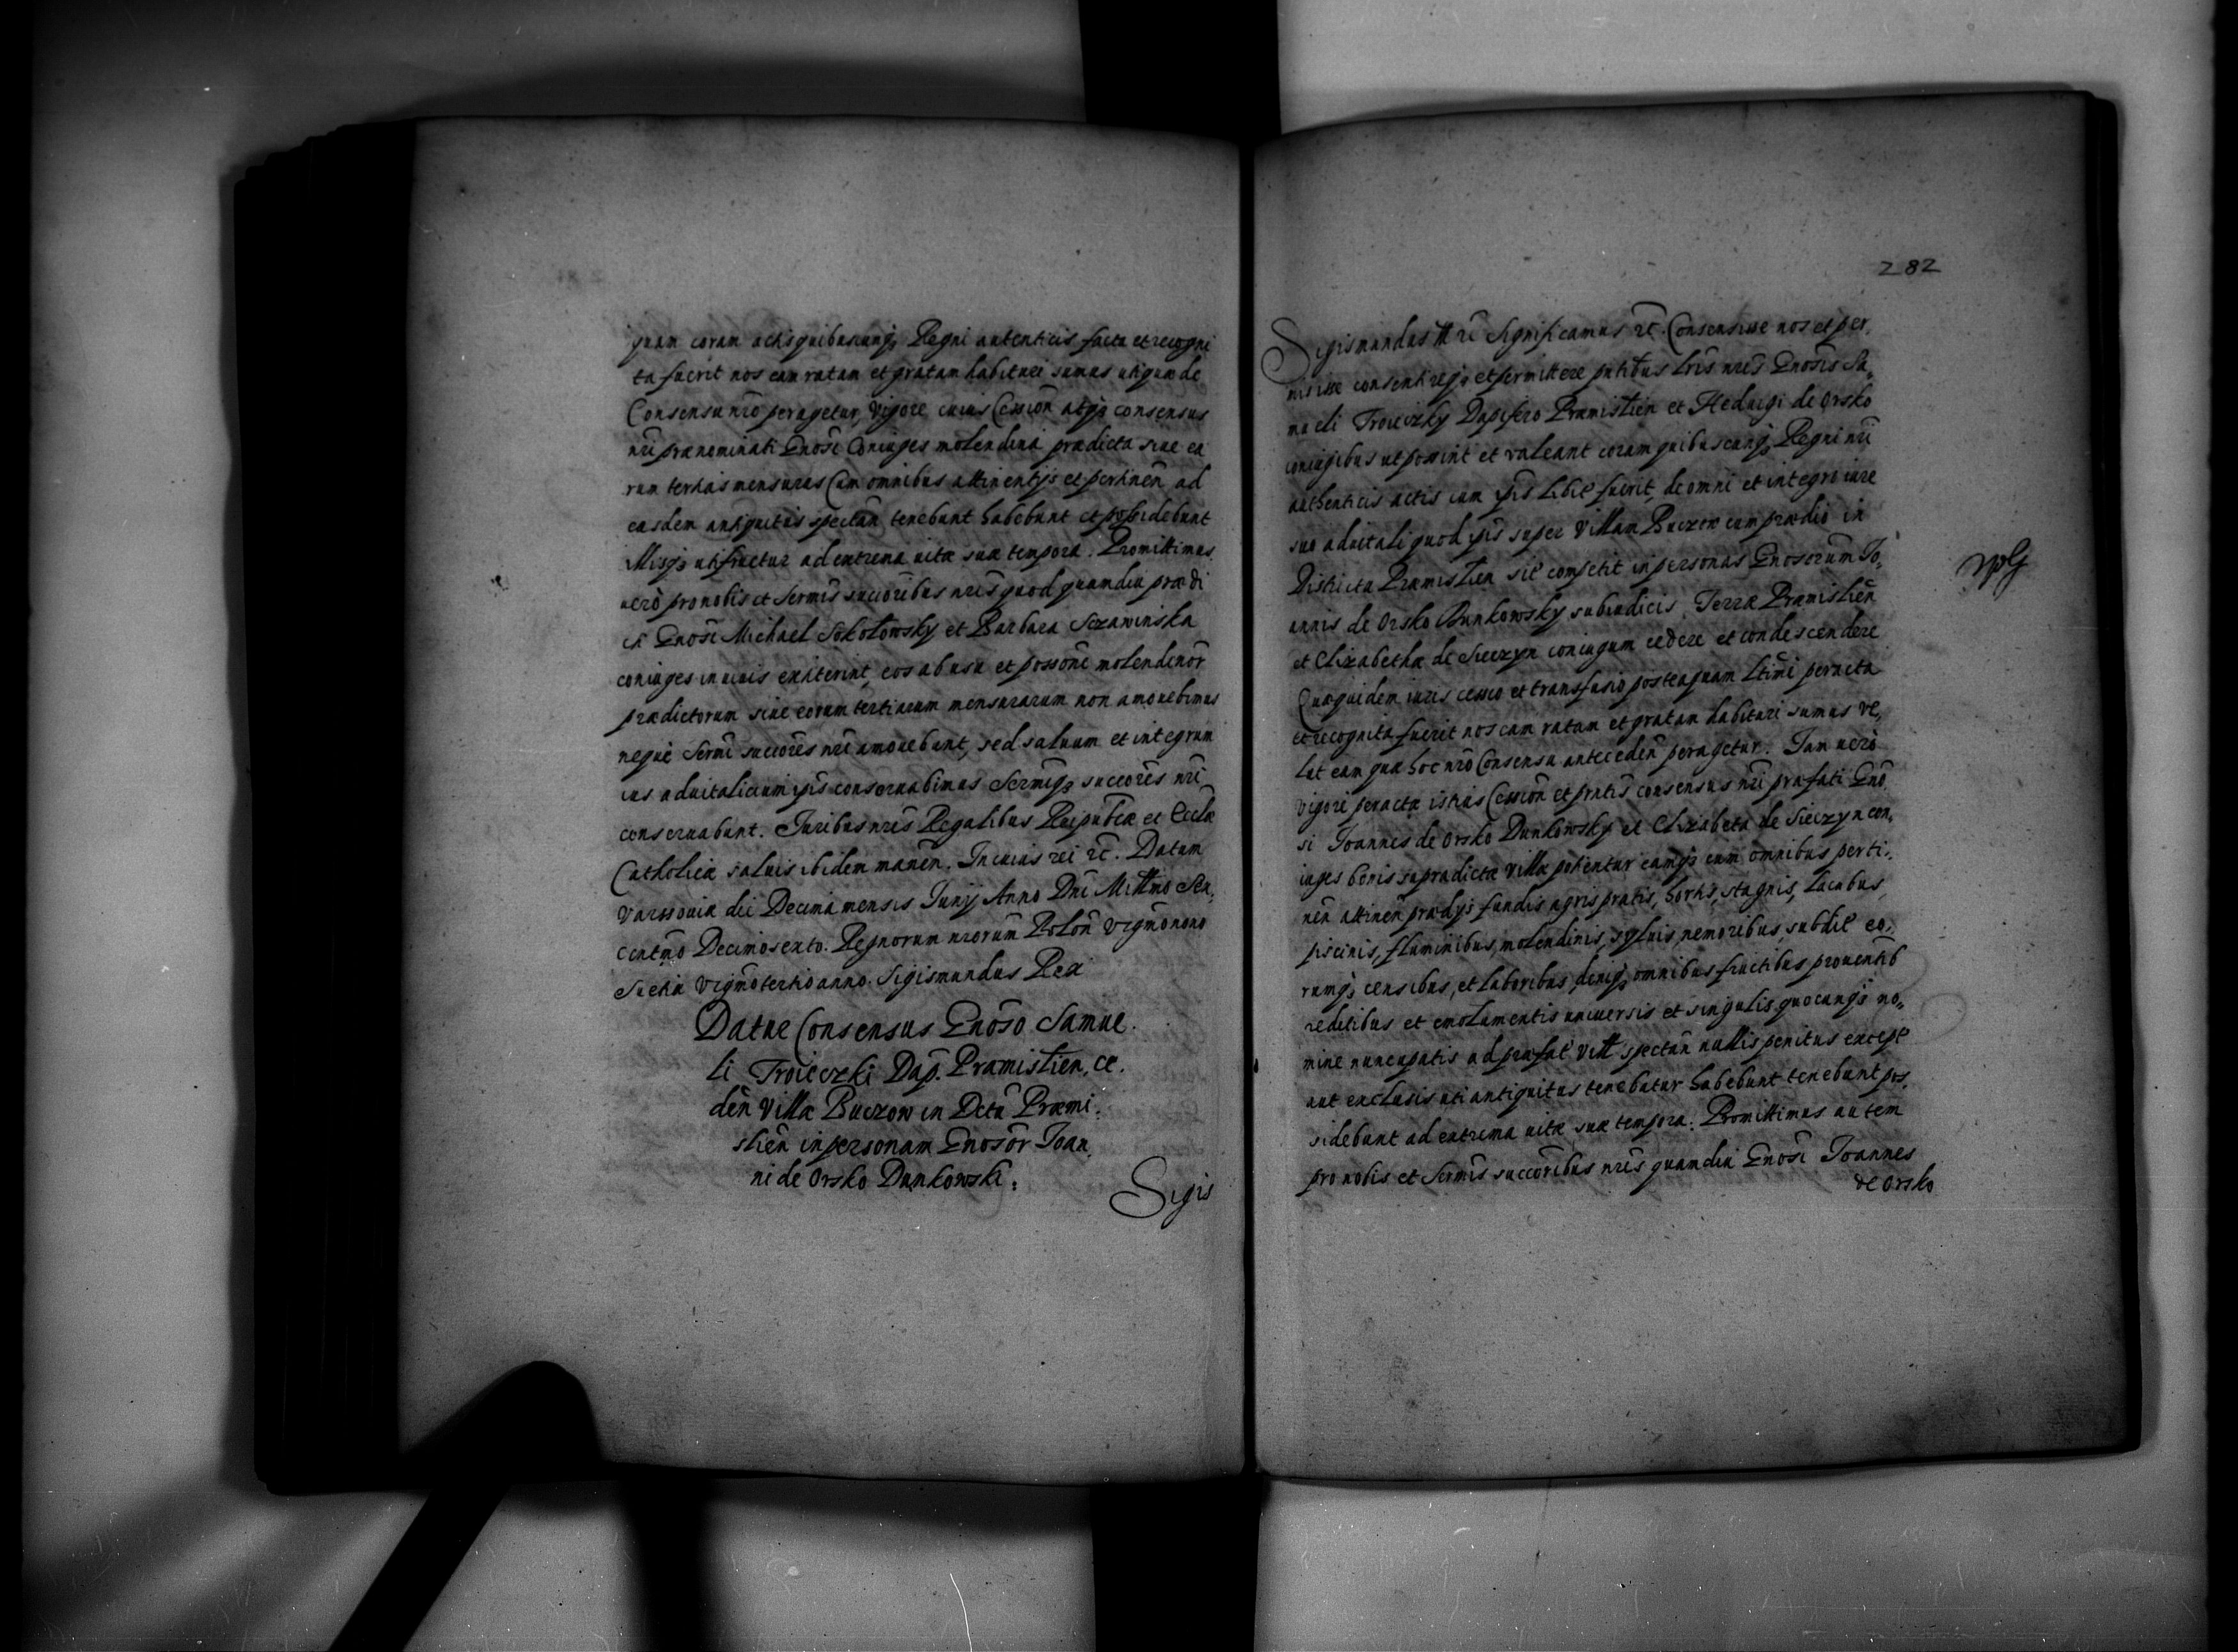 quam coram actis quibuscunq; Regni autenticis facta et recogni
ta fuerit nos eam ratam et gratam habituri sumus utq; quæ de
Consensu nr̃o peragetur, vigore cuius Cession̄ atq; consensus
nr̃i prænominati Gnosi Coniuges molendina prædicta siue ea
rum tertias mensuras Cum omnibus attinentijs et pertinen̄ ad
easdem antiquitus spectan̄ tenebunt habebunt et possidebunt
illisq; utifruetur ad extrema uitæ suæ tempora. Promittimus
uerò pro nobis et Sermis succoribus nr̃is quod quamdiu prædi
cti Gnosi Michael Sokołowsky et Barbara Szawinska
coniuges in uiuis extiterint, eos ab usu et possone molendinor̄
prædictorum siue eorum tertiarum mensurarum non amouebimus
neque Sermi succores nr̃i amouebunt, sed saluum et integrum
ius aduitalicium ip̄is conseruabimus Sermiq; succores nr̃i
conseruabunt. Juribus nr̃is Regalibus Reipublicæ et Ecclæ
Catholicæ saluis ibidem manen̄. In cuius rei etc. Datum
Varssouiæ die Decima mensis Junij Anno Dn̄i Millmo Sex,
centmo Decimosexto. Regnorum nr̃orum Polon̄ vigmonono
Sueciæ vigmotertio anno. Sigismundus Rex
Datur Consensus Gnoso Samue.
li Troieczki Dap. Præmislien, ce.
den̄ Villæ Buczow in Dctu Præmi:
slien̄ in personam Gnosor̄ Joan
ni de Orsko Dunkowski:
Sigis
282
Sigismundus III etc. Significamus etc. Consensisse nos et per,
misisse consentireq; et permittere p̄ntibus lr̃is nr̃is Gnosis Sa,
mueli Troieczky Dapifero Præmislien et Heduigi de Orsko
coniugibus ut possint et valeant coram quibuscunq; Regni nr̃i
authenticis actis cum ip̄is libit̄ fuerit, de omni et integro iure
suo aduitali quod ip̄is super Villam Buczow cum prædio in
Districtu Præmislien sit̄ competit in personas Gnosorum Jo,
annis de Orsko Dunkowsky subiudicis Terræ Præmislien̄
et Elizabethæ de Sieczyn coniugum cedere et condescendere
Quæquidem iuris cessio et transfusio posteaquam l̄time peracta
et recognita fuerit nos eam ratam et gratam habituri sumus ve,
lut eam quæ hoc nr̃o Consensu anteceden̄ peragetur. Jam uerò
vigore peractæ istius Cession̄ et p̄ntis consensus nr̃i præfati Gno
si Joannes de Orsko Dunkowsky et Elizabeta de Sieczyn con,
iuges bonis supradictæ villæ potientur eamq; cum omnibus perti,
nen̄ attinen̄ prædijs fundis agris pratis, hortis, stagnis, lacubus,
piscinis, fluminibus, molendinis, syluis, nemoribus, subdit̄ eo,
rumq; censibus, et laboribus, deniq; omnibus fructibus prouentib
reditibus et emolumentis uniuersis et singulis quocunq; no,
mine nuncupatis ad præfat̄ vill̄ spectan̄ nullis penitus except̄
aut exclusis uti antiquitus tenebatur habebunt tenebunt pos,
sidebunt ad extrema uitæ suæ tempora. Promittimus autem
pro nobis et Sermis succoribus nr̃is quamdiu Gnosi Joannes
de Orsko